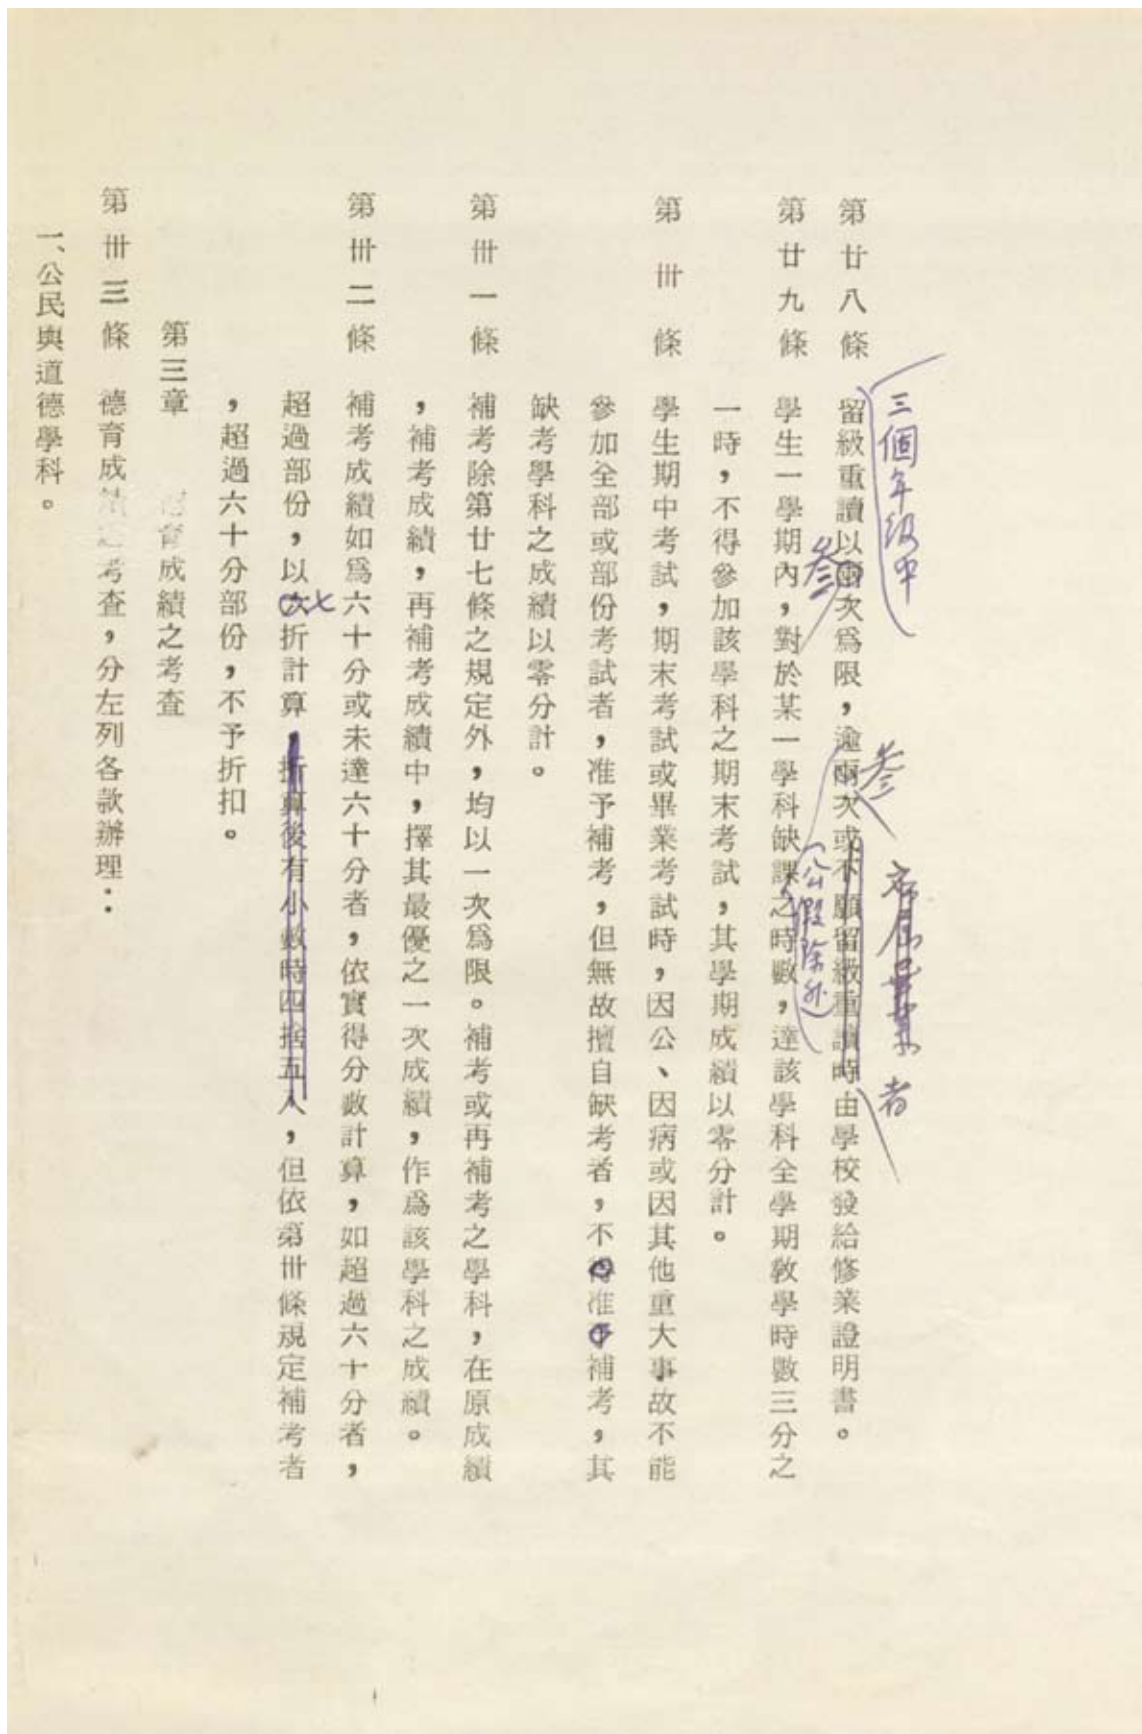 三個年級中
叁
叁
者
第廿八條　留級重讀以兩次爲限，逾兩次或不願留級重讀時由學校發給修業證明書。
(公假除外)
第廿九條　學生一學期內，對於某一學科缺課之時數，達該學科全學期教學時數三分之
一時，不得參加該學科之期末考試，其學期成績以零分計。
第卅條　學生期中考試，期末考試或畢業考試時，因公、因病或因其他重大事故不能
參加全部或部份考試者，准予補考，但無故擅自缺考者，不得准予補考，其
缺考學科之成績以零分計。
第卅一條　補考除第廿七條之規定外，均以一次爲限。補考或再補考之學科，在原成績
，補考成績，再補考成績中，擇其最優之一次成績，作爲該學科之成績。
第卅二條　補考成績如爲六十分或未達六十分者，依實得分數計算，如超過六十分者，
七
超過部份，以六折計算，折算後有小數時四捨五入，但依第卅條規定補考者
，超過六十分部份，不予折扣。
第三章　育成績之考查
第卅三條　德育成績之考查，分左列各款辦理：
一、公民與道德學科。